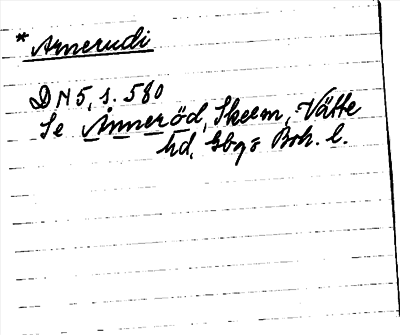 * Arnerudi
DN 5, s. 580
Se Änneröd, Skeem, Vätte
hd, Gbgs Boh. l.